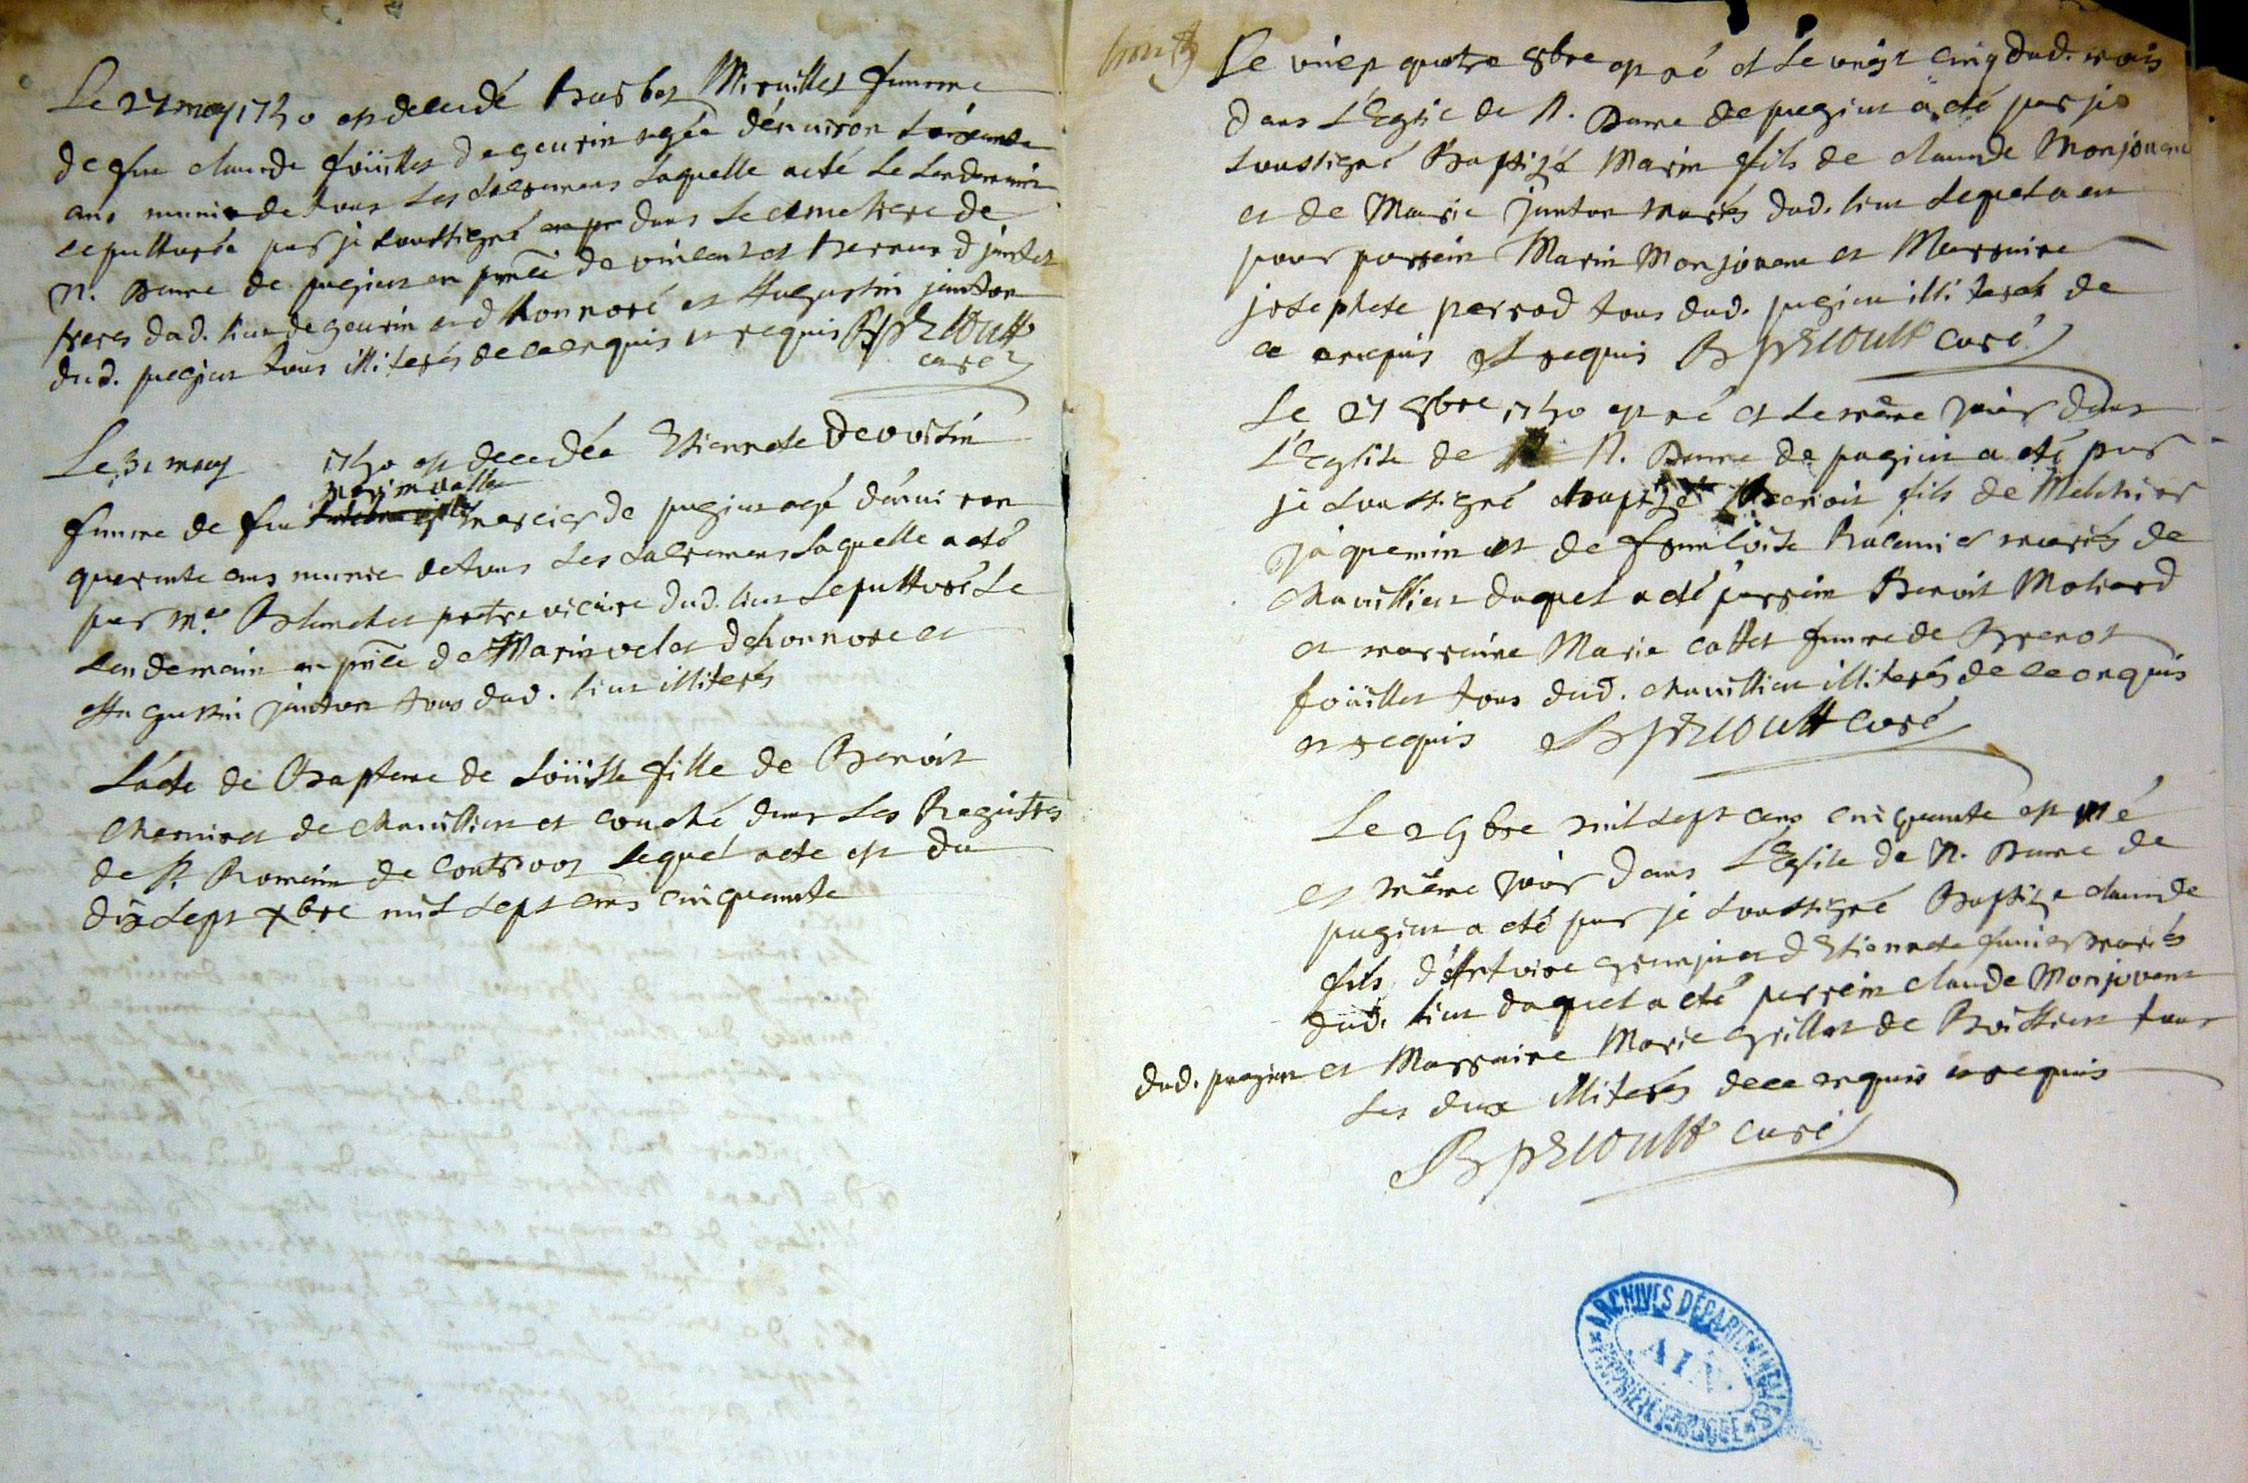 Le 27 may 1750 est decedé Barbet Mirailles femme
de feu claude foüilles de geurin agée dénviron soixante
ans munie de tous les sacremens laquelle a eté le lendemain
sepulturée par je soussigné dans le cimetiere de
N. Dame de pugieu en pnce de vincent et Bernard jantet
freres dud. lieu de geurin et d honnoré et Augustin janton
dud. pugieu tous illiterés de ce enquis et requis
curé
Le 31 may 1750 est decedée Etiennete Devoisin
femme de feu mercier de pugieu agé dénviron
quarante ans munie de tous les sacremens laquelle a eté
par mre Blanchet pretre vicaire dud. lieu sepulturé le
lendemain en pnce de Marin velet d honnore et
Augustin janton tous dud. lieu illiterés
L'acte de Bapteme de Loüise fille de Benoit
de chavillieu et couché dans les Registres
de St. Romain de contrevoz lequel acte est du
dix sept xbre mil sept cens cinquante
Le vingt quatre 8bre est né et le vingt cinq dud. mois
dans L'Eglise de N. Dame de pugieu a eté par je
soussigné Baptizé Marin fils de claude Monjovent
et de Marie janton mariés dud. lieu lequel a eu
pour parrein Marin Monjovent et Marraine
josephete perrod tous dud. pugieu illiterés de
ce enquis et requis curé
Le 27 8bre 1750 est né et le même jour dans
L'Eglise de N. Dame de pugieu a eté par
je soussigné baptizé Benoit fils de Melchior
jaquemin et de francoise mariés de
chavillieu duquel a eté parrein Benoit Moliard
et marraine Marie collet femme de
foüilles tous dud. chavillieu illiterés de ce enquis
et requis curé
Le 2 9bre mil sept cens cinquante est né
et même jour dans L'Eglise de N. Dame de
pugieu a eté par je soussigné Baptizé claude
fils d'Antoine et d Etiennete mariés
dud. lieu duquel a eté parrein claude Monjovent
dud. pugieu et Marraine Marie grillet de tous
les deux illiterés de ce enquis et requis
curé
ARCHIVES DÉPARTEMENTALES
AIN
PROPRIÉTÉ PUBLIQUE